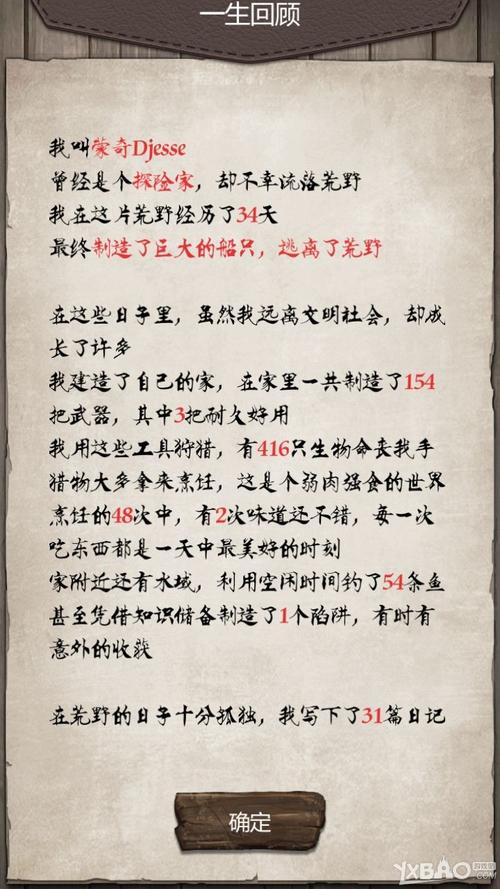 一生回顾
我叫蒙奇Djesse
曾经是个探险家，却不幸流落荒野
我在这片荒野经历了34天
最终制造了巨大的船只，逃离了荒野
在这些日子里，虽然我远离文明社会，却成
长了许多
我建造了自己的家，在家里一共制造了154
把武器，其中3把耐久好用
我用这些工具狩猎，有416只生物命丧我手
猎物大多拿来烹饪，这是个弱肉强食的世界
烹饪的48次中，有2次味道还不错，每一次
吃东西都是一天中最美好的时刻
家附近还有水域，利用空闲时间钓了54条鱼
甚至凭借知识储备制造了1个陷阱，有时有
意外的收获
在荒野的日子十分孤独，我写下了31篇日记
确定
YXBAO
.COM